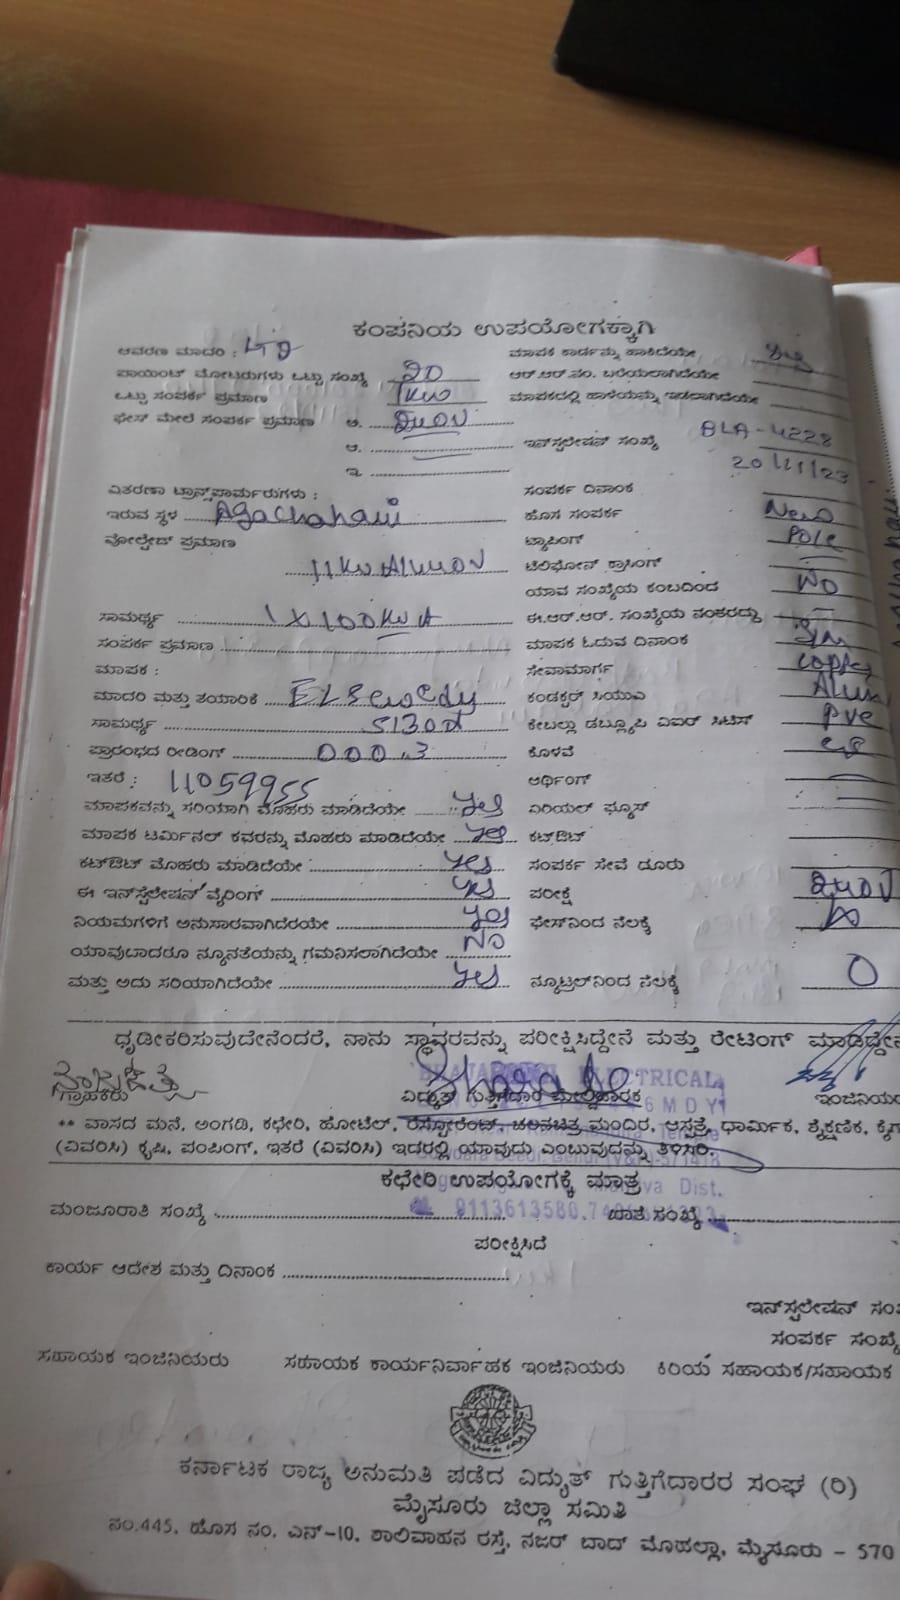 ಕಂಪನಿಯ ಉಪಯೋಗಕ್ಕಾಗಿ
ಆವರಣ ಮಾದರಿ : ಮಾಪಕ ಕಾರ್ಡನ್ನು ಹಾಕಿದೆಯೇ
ಪಾಯಿಂಟ್ ಮೋಟರುಗಳು ಒಟ್ಟು ಸಂಖ್ಯೆ 20 ಆರ್.ಆರ್.ನಂ. ಬರೆಯಲಾಗಿದೆಯೇ
ಒಟ್ಟು ಸಂಪರ್ಕ ಪ್ರಮಾಣ 1kw ಮಾಪಕದಲ್ಲಿ ಹಾಳೆಯನ್ನು ಇಡಲಾಗಿದೆಯೇ
ಫೇಸ್ ಮೇಲೆ ಸಂಪರ್ಕ ಪ್ರಮಾಣ ಅ. 240V
ಆ. ಇನ್‌ಸ್ಟಲೇಷನ್ ಸಂಖ್ಯೆ BLA-4228
ಇ 20/11/23
ವಿತರಣಾ ಟ್ರಾನ್ಸ್‌ಫಾರ್ಮರುಗಳು : ಸಂಪರ್ಕ ದಿನಾಂಕ
ಇರುವ ಸ್ಥಳ ಹೊಸ ಸಂಪರ್ಕ New
ವೋಲ್ಟೇಜ್ ಪ್ರಮಾಣ ಟ್ಯಾಪಿಂಗ್ Pole
ಟೆಲಿಫೋನ್ ಕ್ರಾಸಿಂಗ್
ಯಾವ ಸಂಖ್ಯೆಯ ಕಂಬದಿಂದ No
ಸಾಮರ್ಥ್ಯ 1X100KVA ಈ.ಆರ್.ಆರ್. ಸಂಖ್ಯೆಯ ನಂತರದ್ದು
ಸಂಪರ್ಕ ಪ್ರಮಾಣ ಮಾಪಕ ಓದುವ ದಿನಾಂಕ
ಮಾಪಕ : ಸೇವಾಮಾರ್ಗ Copper
ಮಾದರಿ ಮತ್ತು ತಯಾರಿಕೆ ELSewedy ಕಂಡಕ್ಟರ್ ಸಿಯುಎ
ಸಾಮರ್ಥ್ಯ ಕೇಬಲ್ಲು ಡಬ್ಲ್ಯೂಪಿ ಎಐಆರ್ ಸಿಟಿಸ್ PVC
ಪ್ರಾರಂಭದ ರೀಡಿಂಗ್ 000.3 ಕೊಳವೆ
ಇತರೆ : 11059955 ಆರ್ಥಿಂಗ್
ಮಾಪಕವನ್ನು ಸರಿಯಾಗಿ ಮೊಹರು ಮಾಡಿದೆಯೇ yes ಏರಿಯಲ್ ಫ್ಯೂಸ್
ಮಾಪಕ ಟರ್ಮಿನಲ್ ಕವರನ್ನು ಮೊಹರು ಮಾಡಿದೆಯೇ yes ಕಟ್‌ಔಟ್
ಕಟ್‌ಔಟ್ ಮೊಹರು ಮಾಡಿದೆಯೇ yes ಸಂಪರ್ಕ ಸೇವೆ ದೂರು
ಈ ಇನ್‌ಸ್ಟಲೇಷನ್ ವೈರಿಂಗ್ yes ಪರೀಕ್ಷೆ 240V
ನಿಯಮಗಳಿಗೆ ಅನುಸಾರವಾಗಿದೆರಯೇ yes ಫೇಸ್‌ನಿಂದ ನೆಲಕ್ಕೆ
ಯಾವುದಾದರೂ ನ್ಯೂನತೆಯನ್ನು ಗಮನಿಸಲಾಗಿದೆಯೇ No
ಮತ್ತು ಅದು ಸರಿಯಾಗಿದೆಯೇ yes ನ್ಯೂಟ್ರಲ್‌ನಿಂದ ನೆಲಕ್ಕೆ 0
ಧೃಡೀಕರಿಸುವುದೇನೆಂದರೆ, ನಾನು ಸ್ಥಾವರವನ್ನು ಪರೀಕ್ಷಿಸಿದ್ದೇನೆ ಮತ್ತು ರೇಟಿಂಗ್ ಮಾಡಿದ್ದೇನೆ
ಗ್ರಾಹಕರು ವಿದ್ಯುತ್ ಗುತ್ತಿಗೆದಾರ ಮೇಲ್ವಿಚಾರಕ ಇಂಜಿನಿಯರ
ELECTRICAL
** ವಾಸದ ಮನೆ, ಅಂಗಡಿ, ಕಛೇರಿ, ಹೋಟೆಲ್, ರೆಸ್ಟೋರೆಂಟ್, ಚಲನಚಿತ್ರ ಮಂದಿರ, ಆಸ್ಪತ್ರೆ, ಧಾರ್ಮಿಕ, ಶೈಕ್ಷಣಿಕ, ಕೈಗ
(ವಿವರಿಸಿ) ಕೃಷಿ, ಪಂಪಿಂಗ್, ಇತರೆ (ವಿವರಿಸಿ) ಇದರಲ್ಲಿ ಯಾವುದು ಎಂಬುವುದನ್ನು ತಿಳಿಸಿರಿ.
ಕಛೇರಿ ಉಪಯೋಗಕ್ಕೆ ಮಾತ್ರ
Dist.
ಮಂಜೂರಾತಿ ಸಂಖ್ಯೆ 9113613580 ಖಾತೆ ಸಂಖ್ಯೆ
ಪರೀಕ್ಷಿಸಿದೆ
ಕಾರ್ಯ ಆದೇಶ ಮತ್ತು ದಿನಾಂಕ
ಇನ್‌ಸ್ಟಲೇಷನ್ ಸಂಖ
ಸಂಪರ್ಕ ಸಂಖ್ಯೆ
ಸಹಾಯಕ ಇಂಜಿನಿಯರು ಸಹಾಯಕ ಕಾರ್ಯನಿರ್ವಾಹಕ ಇಂಜಿನಿಯರು ಕಿರಿಯ ಸಹಾಯಕ/ಸಹಾಯಕ
ಕರ್ನಾಟಕ ರಾಜ್ಯ ಅನುಮತಿ ಪಡೆದ ವಿದ್ಯುತ್ ಗುತ್ತಿಗೆದಾರರ ಸಂಘ (ರಿ)
ಮೈಸೂರು ಜಿಲ್ಲಾ ಸಮಿತಿ
ನಂ.445, ಹೊಸ ನಂ. ಎನ್-10, ಶಾಲಿವಾಹನ ರಸ್ತೆ, ನಜರ್ ಬಾದ್ ಮೊಹಲ್ಲಾ, ಮೈಸೂರು - 570